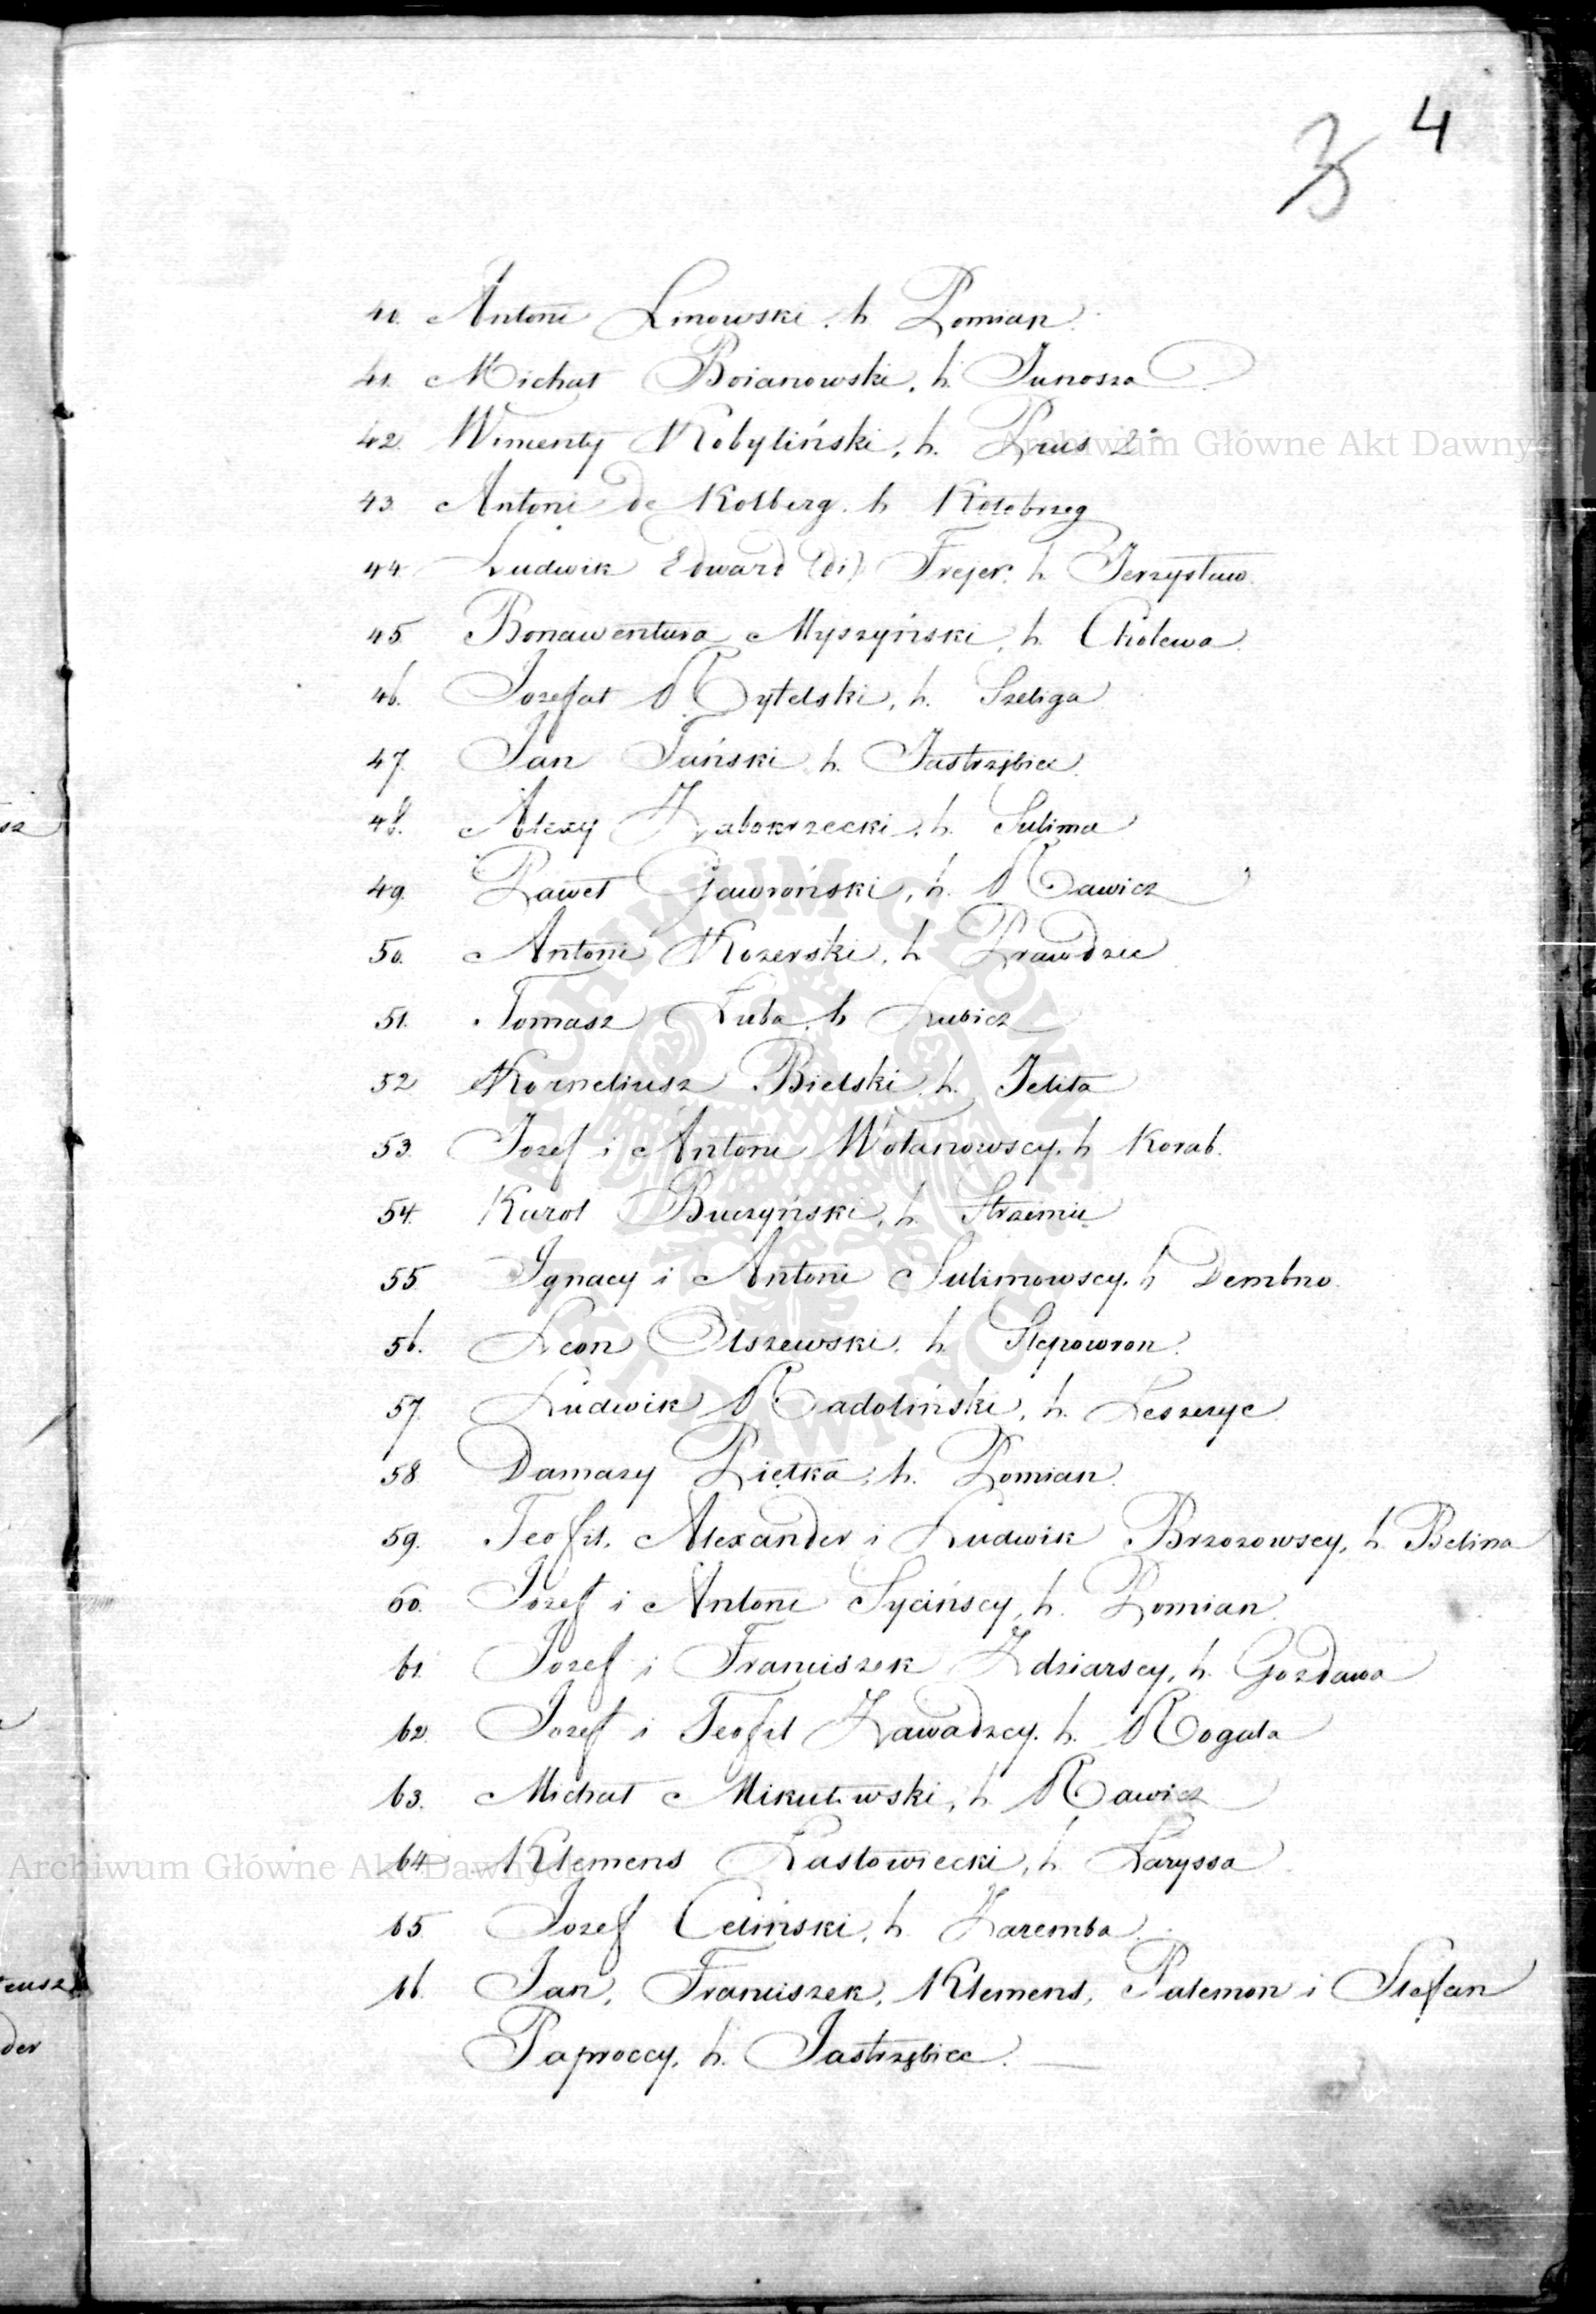 3 4
40. Antoni Linowski, h. Pomian.
41. Michał Boianowski, h. Junosza
42. Wincenty Kobyliński, h. Prus 2º
Archiwum Główne Akt Dawnych
43. Antoni de Kolberg, h. Kołobrzeg
44. Ludwik Edward (di) Frejer, h. Jerzysław.
45. Bonawentura Myszyński, h. Cholewa.
46. Jozefat Rytelski, h. Szeliga
47. Jan Tański, h. Jastrzębiec.
48. Alexy Zabokrzecki, h. Sulima
49. Paweł Gawroński, h. Rawicz
50. Antoni Kozerski, h. Prawdzic
51. Tomasz Łuba, h. Lubicz
52. Korneliusz Bielski, h. Jelita
53. Jozef i Antoni Wolanowscy, h. Korab.
54. Karol Buczyński, h. Strzemię
55. Ignacy i Antoni Sulimowscy, h. Dembno.
56. Leon Olszewski, h. Slepowron.
57. Ludwik Radoliński, h. Leszczyc
58. Damazy Piętka, h. Pomian.
59. Teofil, Alexander i Ludwik Brzozowscy, h. Belina
60. Jozef i Antoni Sycińscy, h. Pomian.
61. Jozef i Franciszek Zdziarscy, h. Gozdawa
62. Jozef i Teofil Zawadzcy, h. Rogala
63. Michał Mikułowski, h. Rawicz
64. Klemens Łastowiecki, h. Łaryssa
Archiwum Główne Akt Dawnych
65. Jozef Celiński, h. Zaremba.
66. Jan, Franciszek, Klemens, Palemon i Stefan
Paproccy, h. Jastrzębiec.